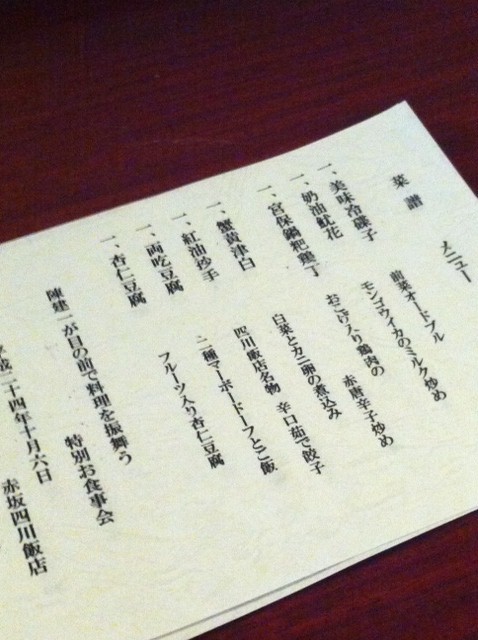 菜譜　メニュー
一、美味冷碟子　前菜オードブル
一、奶油魷花　モンゴウイカのミルク炒め
一、宮保鍋粑鶏丁　おこげ入り鶏肉の　赤唐辛子炒め
一、蟹黄津白　白菜とカニ卵の煮込み
一、紅油抄手　四川飯店名物　辛口茹で餃子
一、両吃豆腐　二種マーボードーフとご飯
一、杏仁豆腐　フルーツ入り杏仁豆腐
陳建一が目の前で料理を振舞う
特別お食事会
成二十四年十月六日
赤坂四川飯店